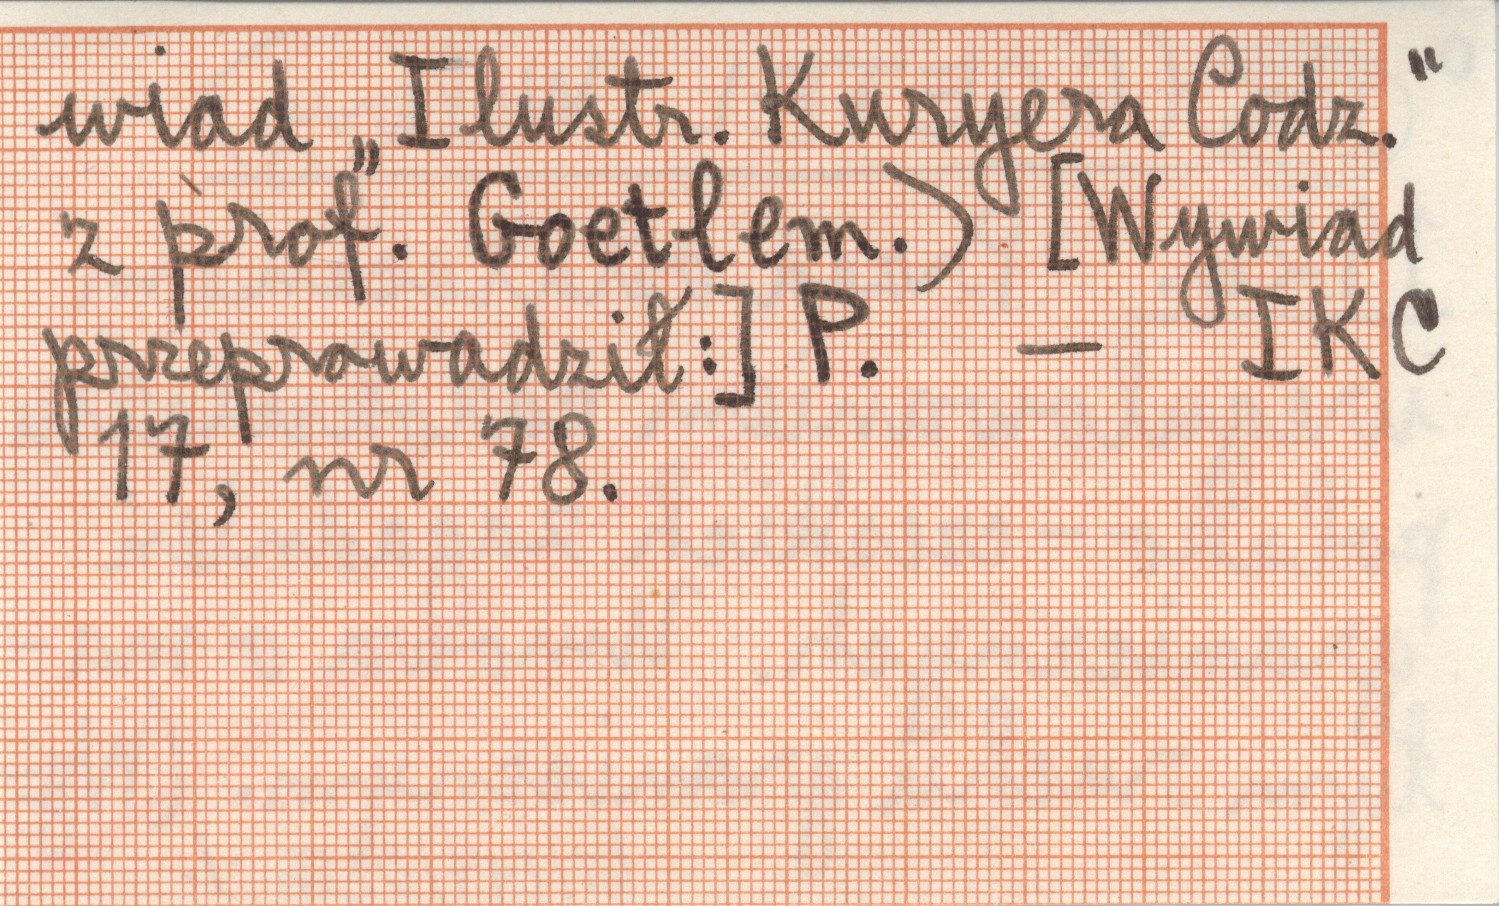 wiad „Ilustr. Kuryera Codz."
z prof. Goetlem.) [Wywiad
przeprowadził:] P. — IKC
17, nr 78.